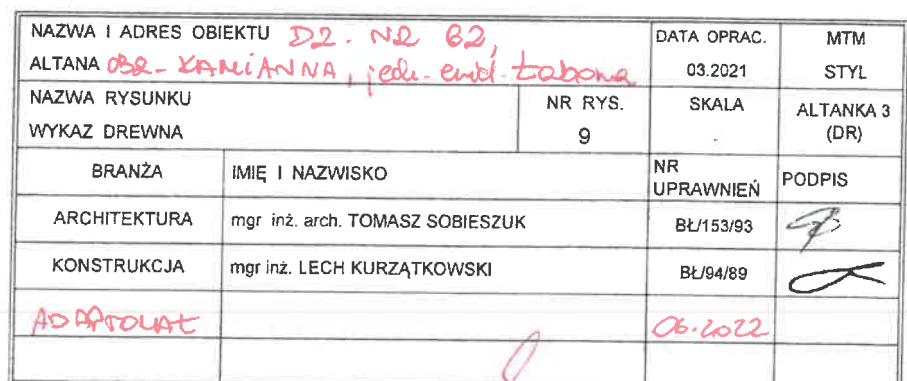 NAZWA I ADRES OBIEKTU DZ. NR 62,
ALTANA OBR. KAMIANNA, jedn. ewid. Łabowa
DATA OPRAC.
03.2021
MTM
STYL
NAZWA RYSUNKU
WYKAZ DREWNA
NR RYS.
9
SKALA
-
ALTANKA 3
(DR)
BRANŻA IMIĘ I NAZWISKO NR UPRAWNIEŃ PODPIS
ARCHITEKTURA mgr inż. arch. TOMASZ SOBIESZUK BŁ/153/93
KONSTRUKCJA mgr inż. LECH KURZĄTKOWSKI BŁ/94/89
ADAPTOWAŁ 06.2022